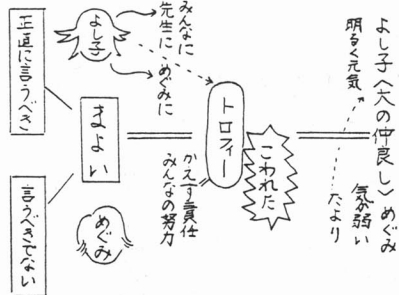 よし子〈大の仲良し〉めぐみ
明るく元気
気が弱い
たより
トロフィー
こわれた
かえす責任
みんなの努力
みんなに
先生に
めぐみに
よし子
まよい
めぐみ
正直に言うべき
言うべきでない